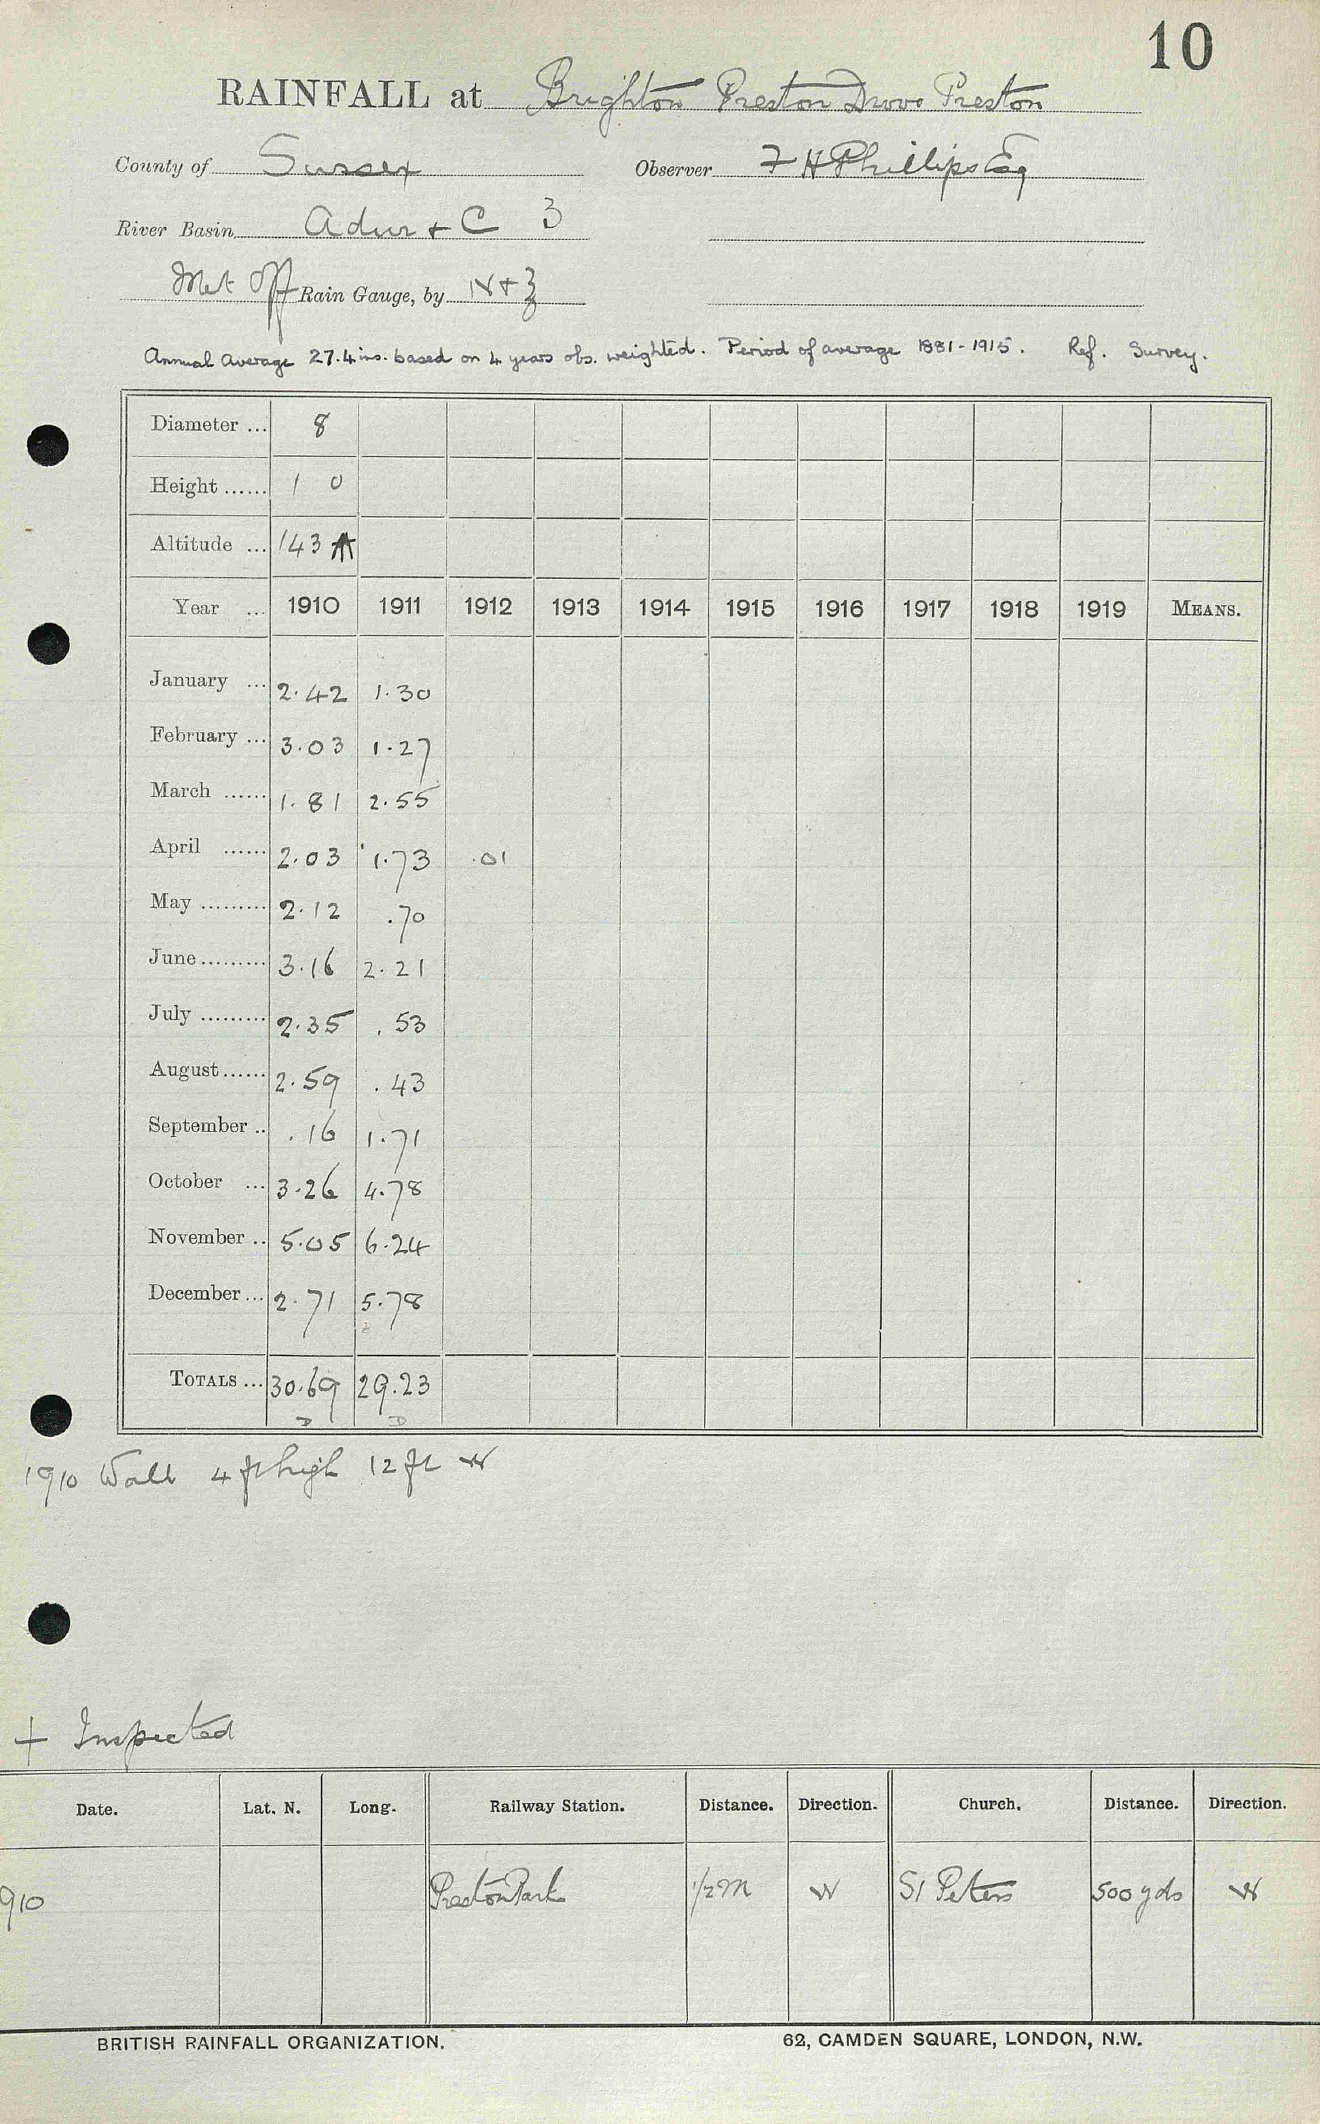 10
RAINFALL at Brighton Preston Drove Preston
County of Sussex Observer F H Phillips Esq
River Basin Adur & C 3
Met Off Rain Gauge, by N + Z
Annual Average 27.4 ins. based on 4 years obs. weighted. Period of average 1881-1915. Ref. Survey.
Diameter ... 8
Height ...... 1 0
Altitude ... 143
Year ... 1910 1911 1912 1913 1914 1915 1916 1917 1918 1919 MEANS.
January ... 2.42 1.30
February ... 3.03 1.27
March ...... 1.81 2.55
April ...... 2.03 1.73 .01
May ......... 2.12 .70
June ......... 3.16 2.21
July ......... 2.35 .53
August ...... 2.59 .43
September .. .16 1.71
October ... 3.26 4.78
November .. 5.05 6.24
December ... 2.71 5.78
TOTALS ... 30.69 29.23
D D
1910 Wall 4 ft high 12 ft W
+ Inspected
Date. Lat. N. Long. Railway Station. Distance. Direction. Church. Distance. Direction.
910 Preston Park 1/2 m W St Peters 500 yds W
BRITISH RAINFALL ORGANIZATION. 62, CAMDEN SQUARE, LONDON, N.W.